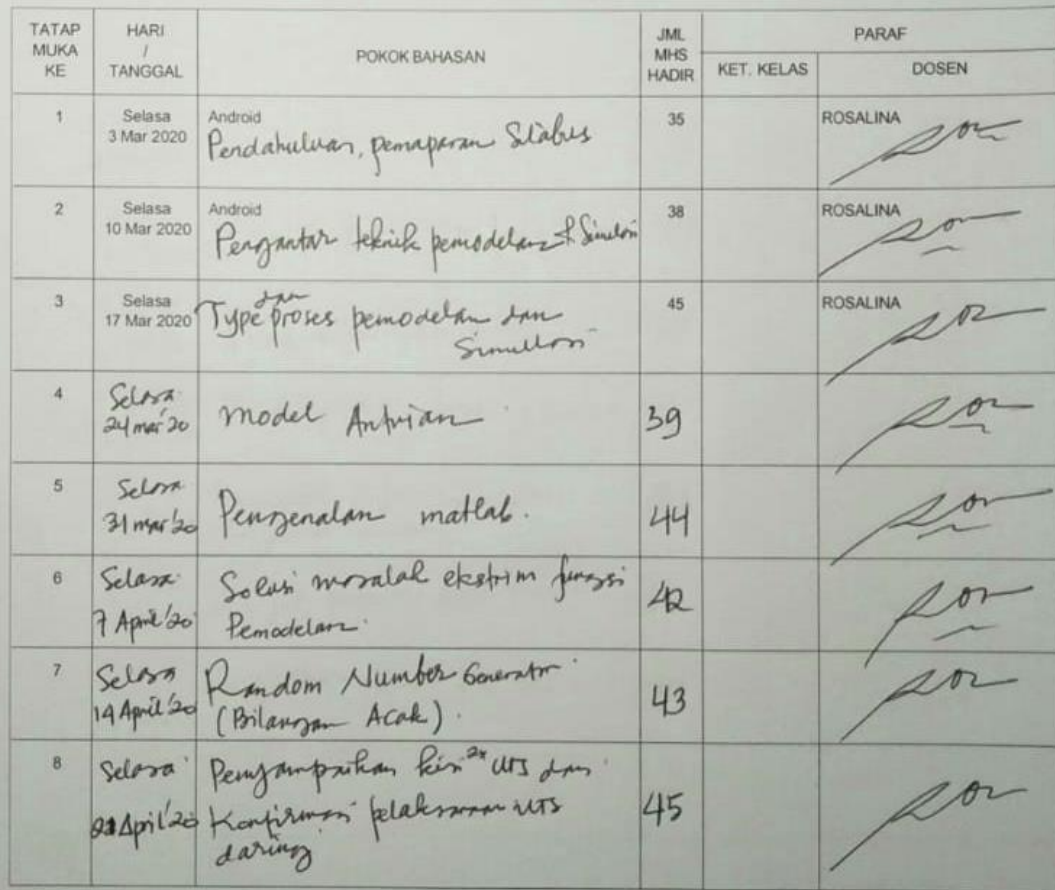 TATAP MUKA KE
HARI / TANGGAL
POKOK BAHASAN
JML MHS HADIR
PARAF
KET. KELAS
DOSEN
1
Selasa
3 Mar 2020
Android
Pendahuluan, pemaparan Silabus
35
ROSALINA
2
Selasa
10 Mar 2020
Android
Pengantar teknik pemodelan & Simulasi
38
ROSALINA
3
Selasa
17 Mar 2020
Type dan proses pemodelan dan
Simullasi
45
ROSALINA
4
Selasa
24 mar'20
model Antrian
39
5
Selasa
31 mar'20
Pengenalan matlab.
44
6
Selasa
7 April'20
Solusi masalah ekstrim fungsi
Pemodelan.
42
7
Selasa
14 April'20
Random Number Generator
(Bilangan Acak).
43
8
Selasa
21 April'20
Penyampaikan kisi2x UTS dan
Konfirmasi pelaksanaan UTS
daring
45